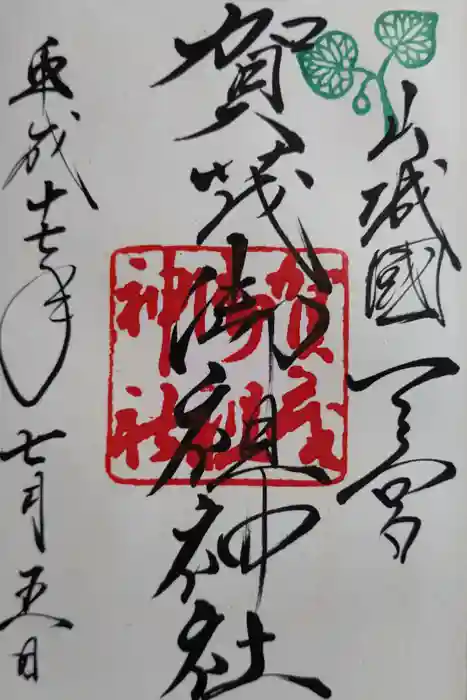 山城國一之宮
賀茂御祖神社
平成十七年七月五日
賀茂
御祖
神社